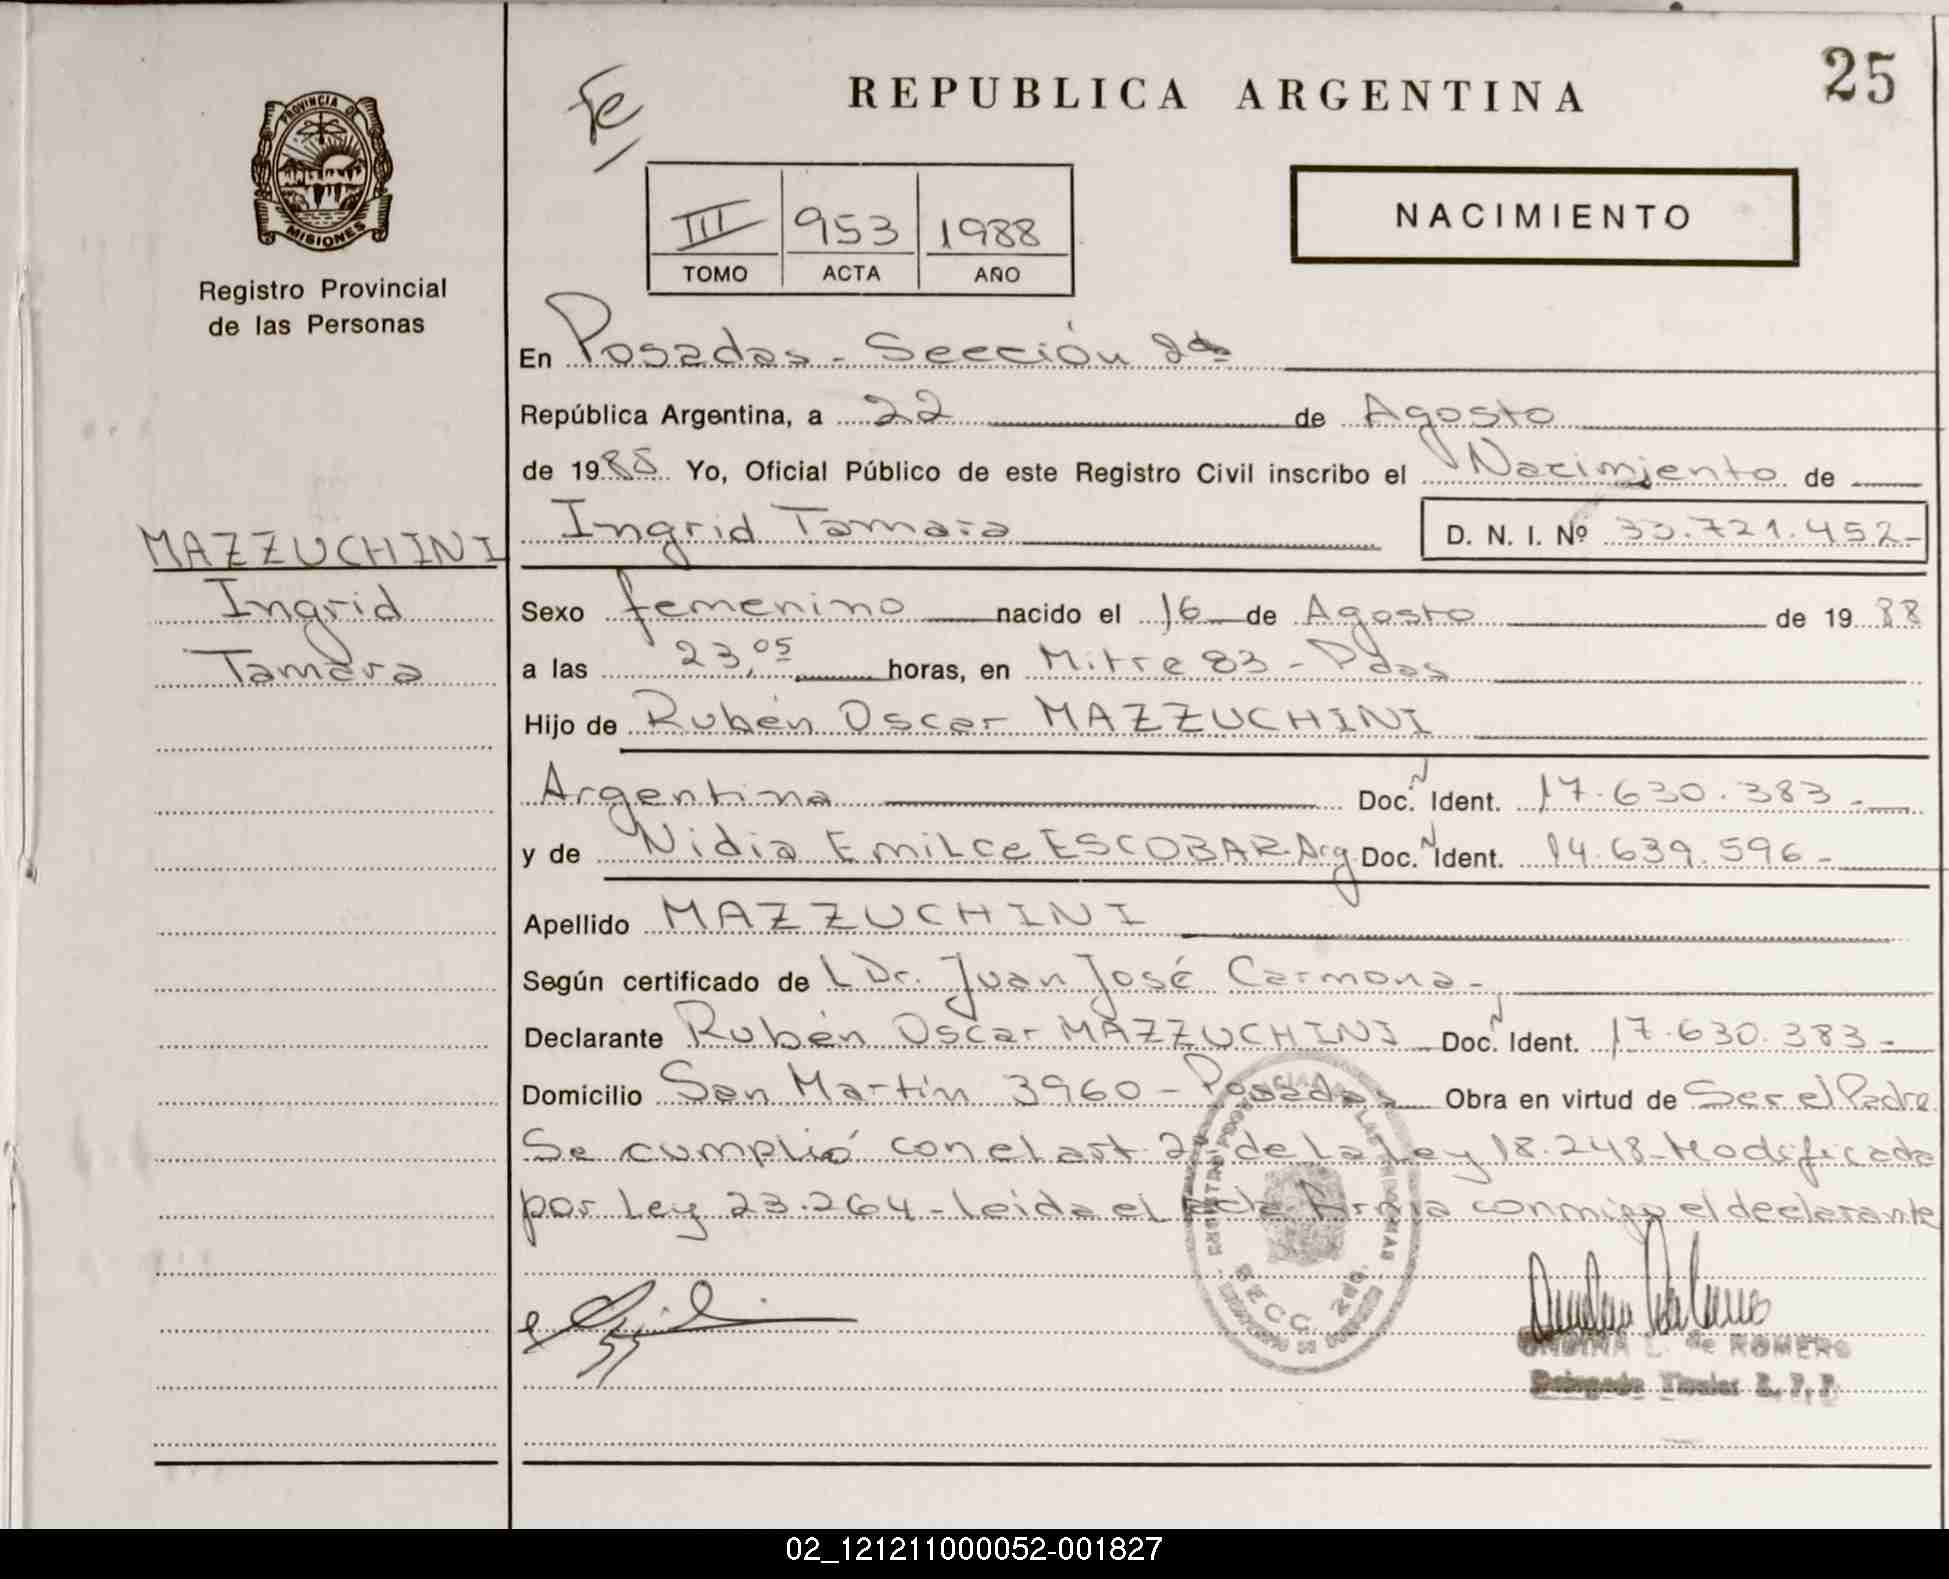 25
REPUBLICA ARGENTINA
Fe
PROVINCIA DE
MISIONES
Registro Provincial
de las Personas
III 953 1988
TOMO ACTA AÑO
NACIMIENTO
En Posadas - Sección 2da
República Argentina, a 22 de Agosto
de 1988 Yo, Oficial Público de este Registro Civil inscribo el Nacimiento de
Ingrid Tamara D. N. I. Nº 33.721.452-
MAZZUCHINI
Ingrid
Tamara
Sexo femenino nacido el 16 de Agosto de 1988
a las 23,05 horas, en Mitre 83 - Pdas
Hijo de Rubén Oscar MAZZUCHINI
Argentina Doc. Ident. 17.630.383-
y de Nidia Emilce ESCOBAR Arg. Doc. Ident. 14.639.596-
Apellido MAZZUCHINI
Según certificado de L Dr. Juan José Carmona-
Declarante Rubén Oscar MAZZUCHINI Doc. Ident. 17.630.383-
Domicilio San Martín 3960 - Posadas Obra en virtud de Ser el Padre
Se cumplió con el art. 2 de la Ley 18.248 - Modificada
por Ley 23.264 - leida el acta firma conmigo el declarante
SECC. 2da.
L. de ROMERO
Delegada Titular R. P. P.
02_121211000052-001827